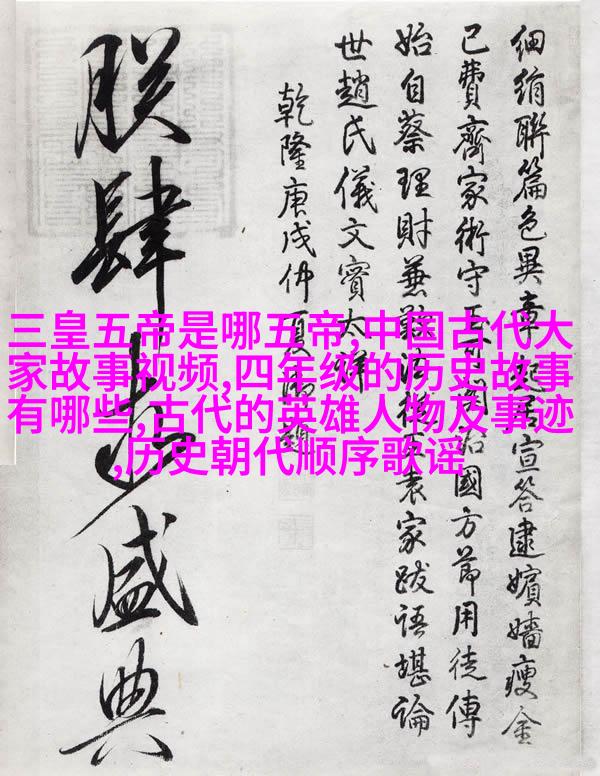 三皇五帝是哪五帝,中国古代大
家故事视频,四年级的历史故事
有哪些,古代的英雄人物及事迹
,历史朝代顺序歌谣
細絹聯篇色異章起居宣答逮嬪嬙瘦金
已費齊家術守治國方節用徒傳
始自蔡理財兼袁家跋語堪論
世趙氏儀文實太
乾隆庚戌仲夏
朕肆盛典